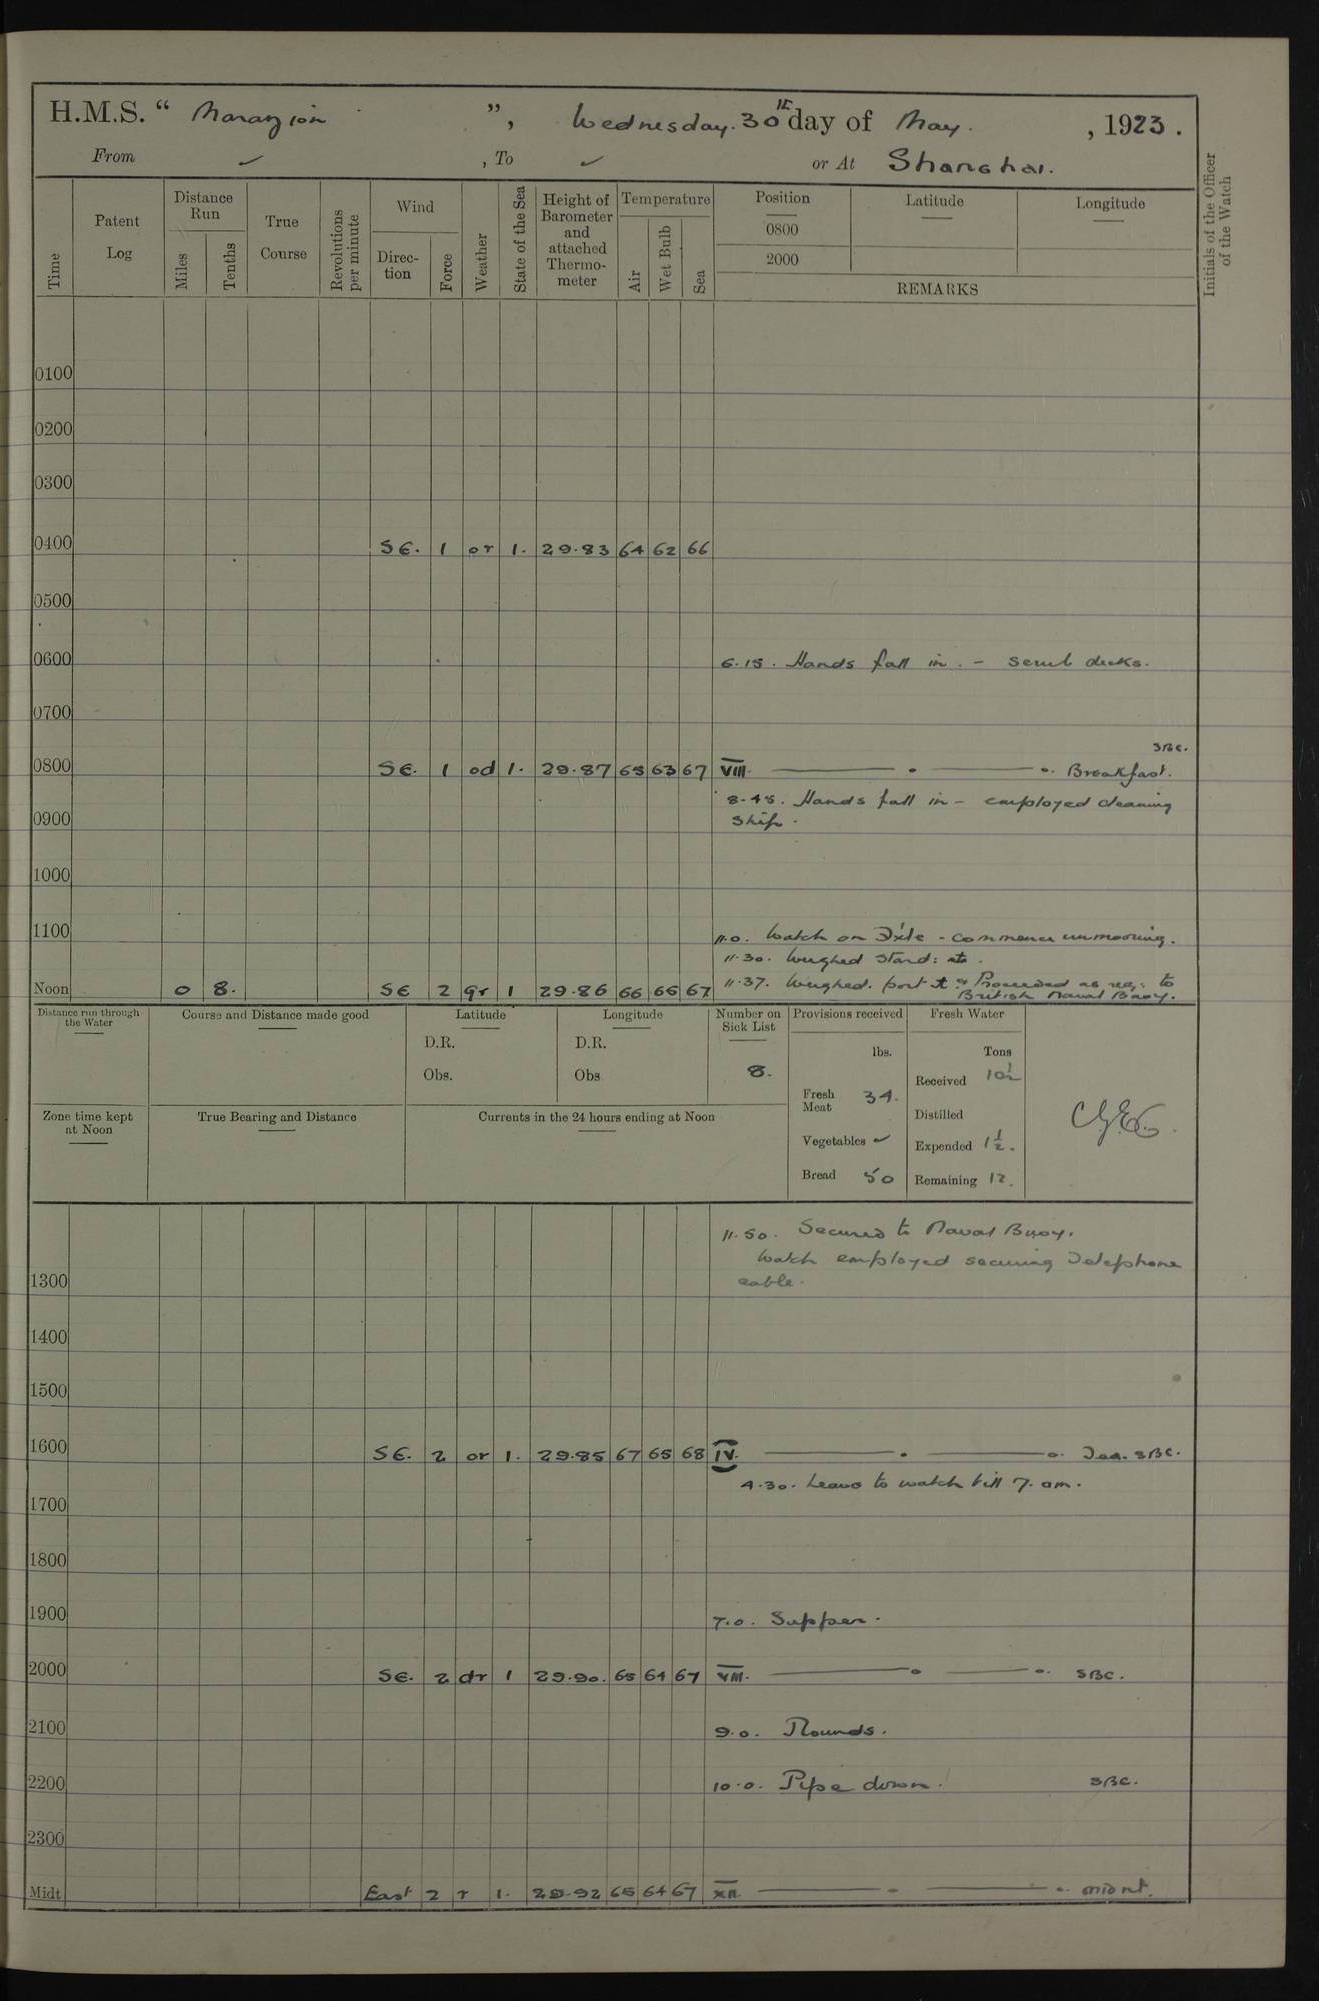 H.M.S. " Marazion ", Wednesday. 30th day of May. , 1923.
From ✓ , To ✓ or At Shanghai.
Time
Patent Log
Distance Run
Miles
Tenths
True Course
Revolutions per minute
Wind
Direction
Force
Weather
State of the Sea
Height of Barometer and attached Thermometer
Temperature
Air
Wet Bulb
Sea
Position
Latitude
Longitude
0800
2000
REMARKS
Initials of the Officer of the Watch
0100
0200
0300
0400 SE. 1 or 1. 29.83 64 62 66
0500
0600 6.15. Hands fall in. - scrub decks.
0700
SBC.
0800 SE. 1 od 1. 29.87 65 63 67 VIII. Breakfast.
8.45. Hands fall in - employed cleaning
0900 ship.
1000
1100 11.0. Watch on Dxle - commence unmooring.
11.30. Weighed Stard:
Noon 0 8. SE 2 qr 1 29.86 66 66 67 11.37. Weighed port & Proceeded as req: to
British Naval Buoy.
Distance run through the Water
Course and Distance made good
Latitude
D.R.
Obs.
Longitude
D.R.
Obs
Number on Sick List
8.
Provisions received
lbs.
Fresh Meat 34.
Vegetables ✓
Bread 50
Fresh Water
Tons
Received 10½
Distilled
Expended 1½.
Remaining 12.
Zone time kept at Noon
True Bearing and Distance
Currents in the 24 hours ending at Noon
11.50. Secured to Naval Buoy.
Watch employed securing Telephone
1300 cable.
1400
1500
1600 SE. 2 or 1. 29.85 67 65 68 IV. Tea. SBC.
4.30. Leave to watch till 7. am.
1700
1800
1900 7.0. Supper.
2000 SE. 2 dr 1 29.90. 65 64 67 VIII. SBC.
2100 9.0. Rounds.
2200 10.0. Pipe down. SBC.
2300
Midt East 2 r 1. 29.92 65 64 67 XII. midnt.